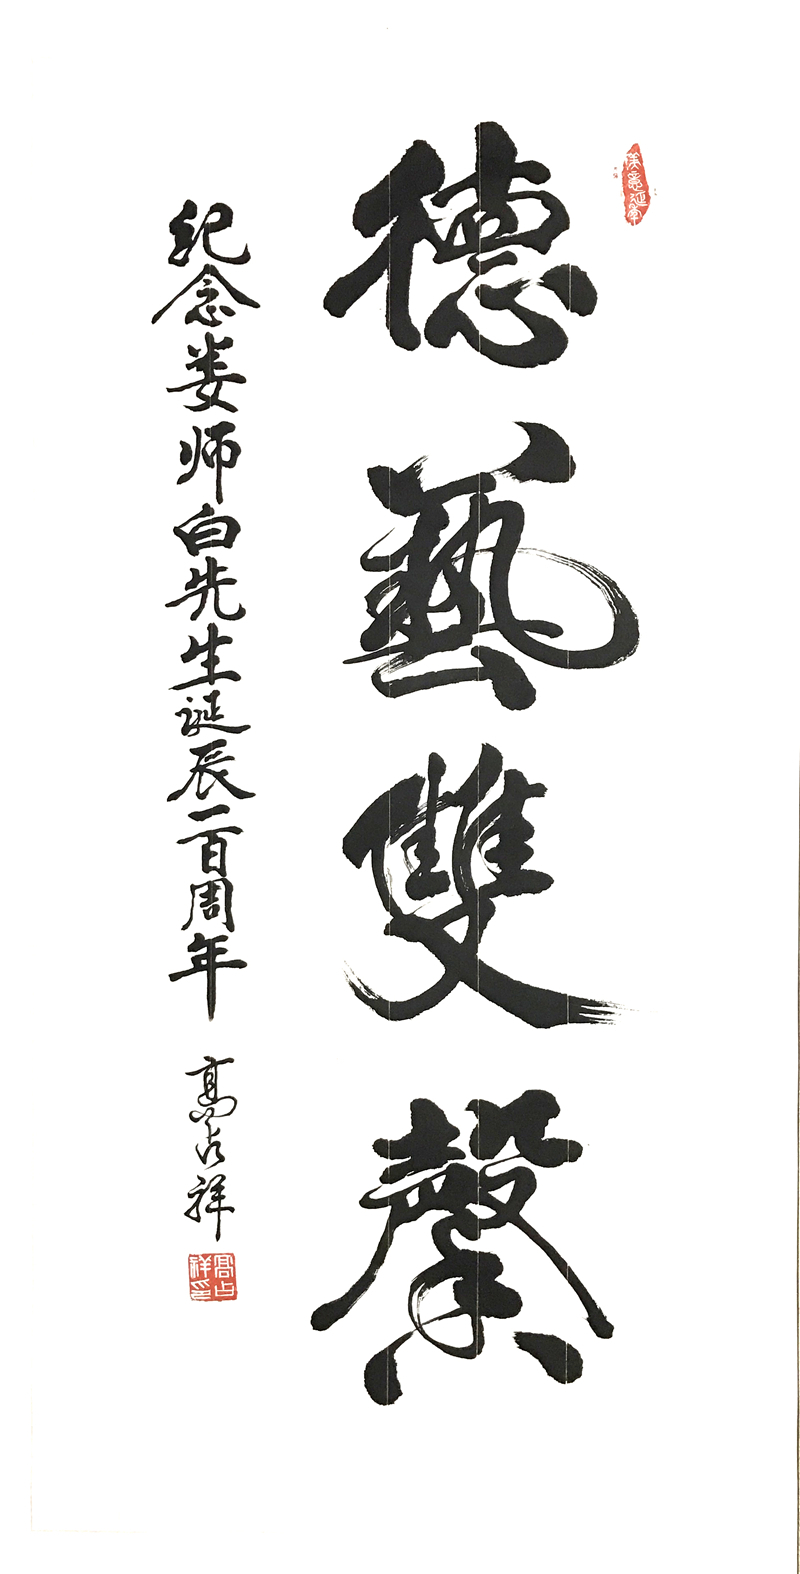 德藝雙馨
纪念娄师白先生诞辰一百周年 高占祥
高占祥印